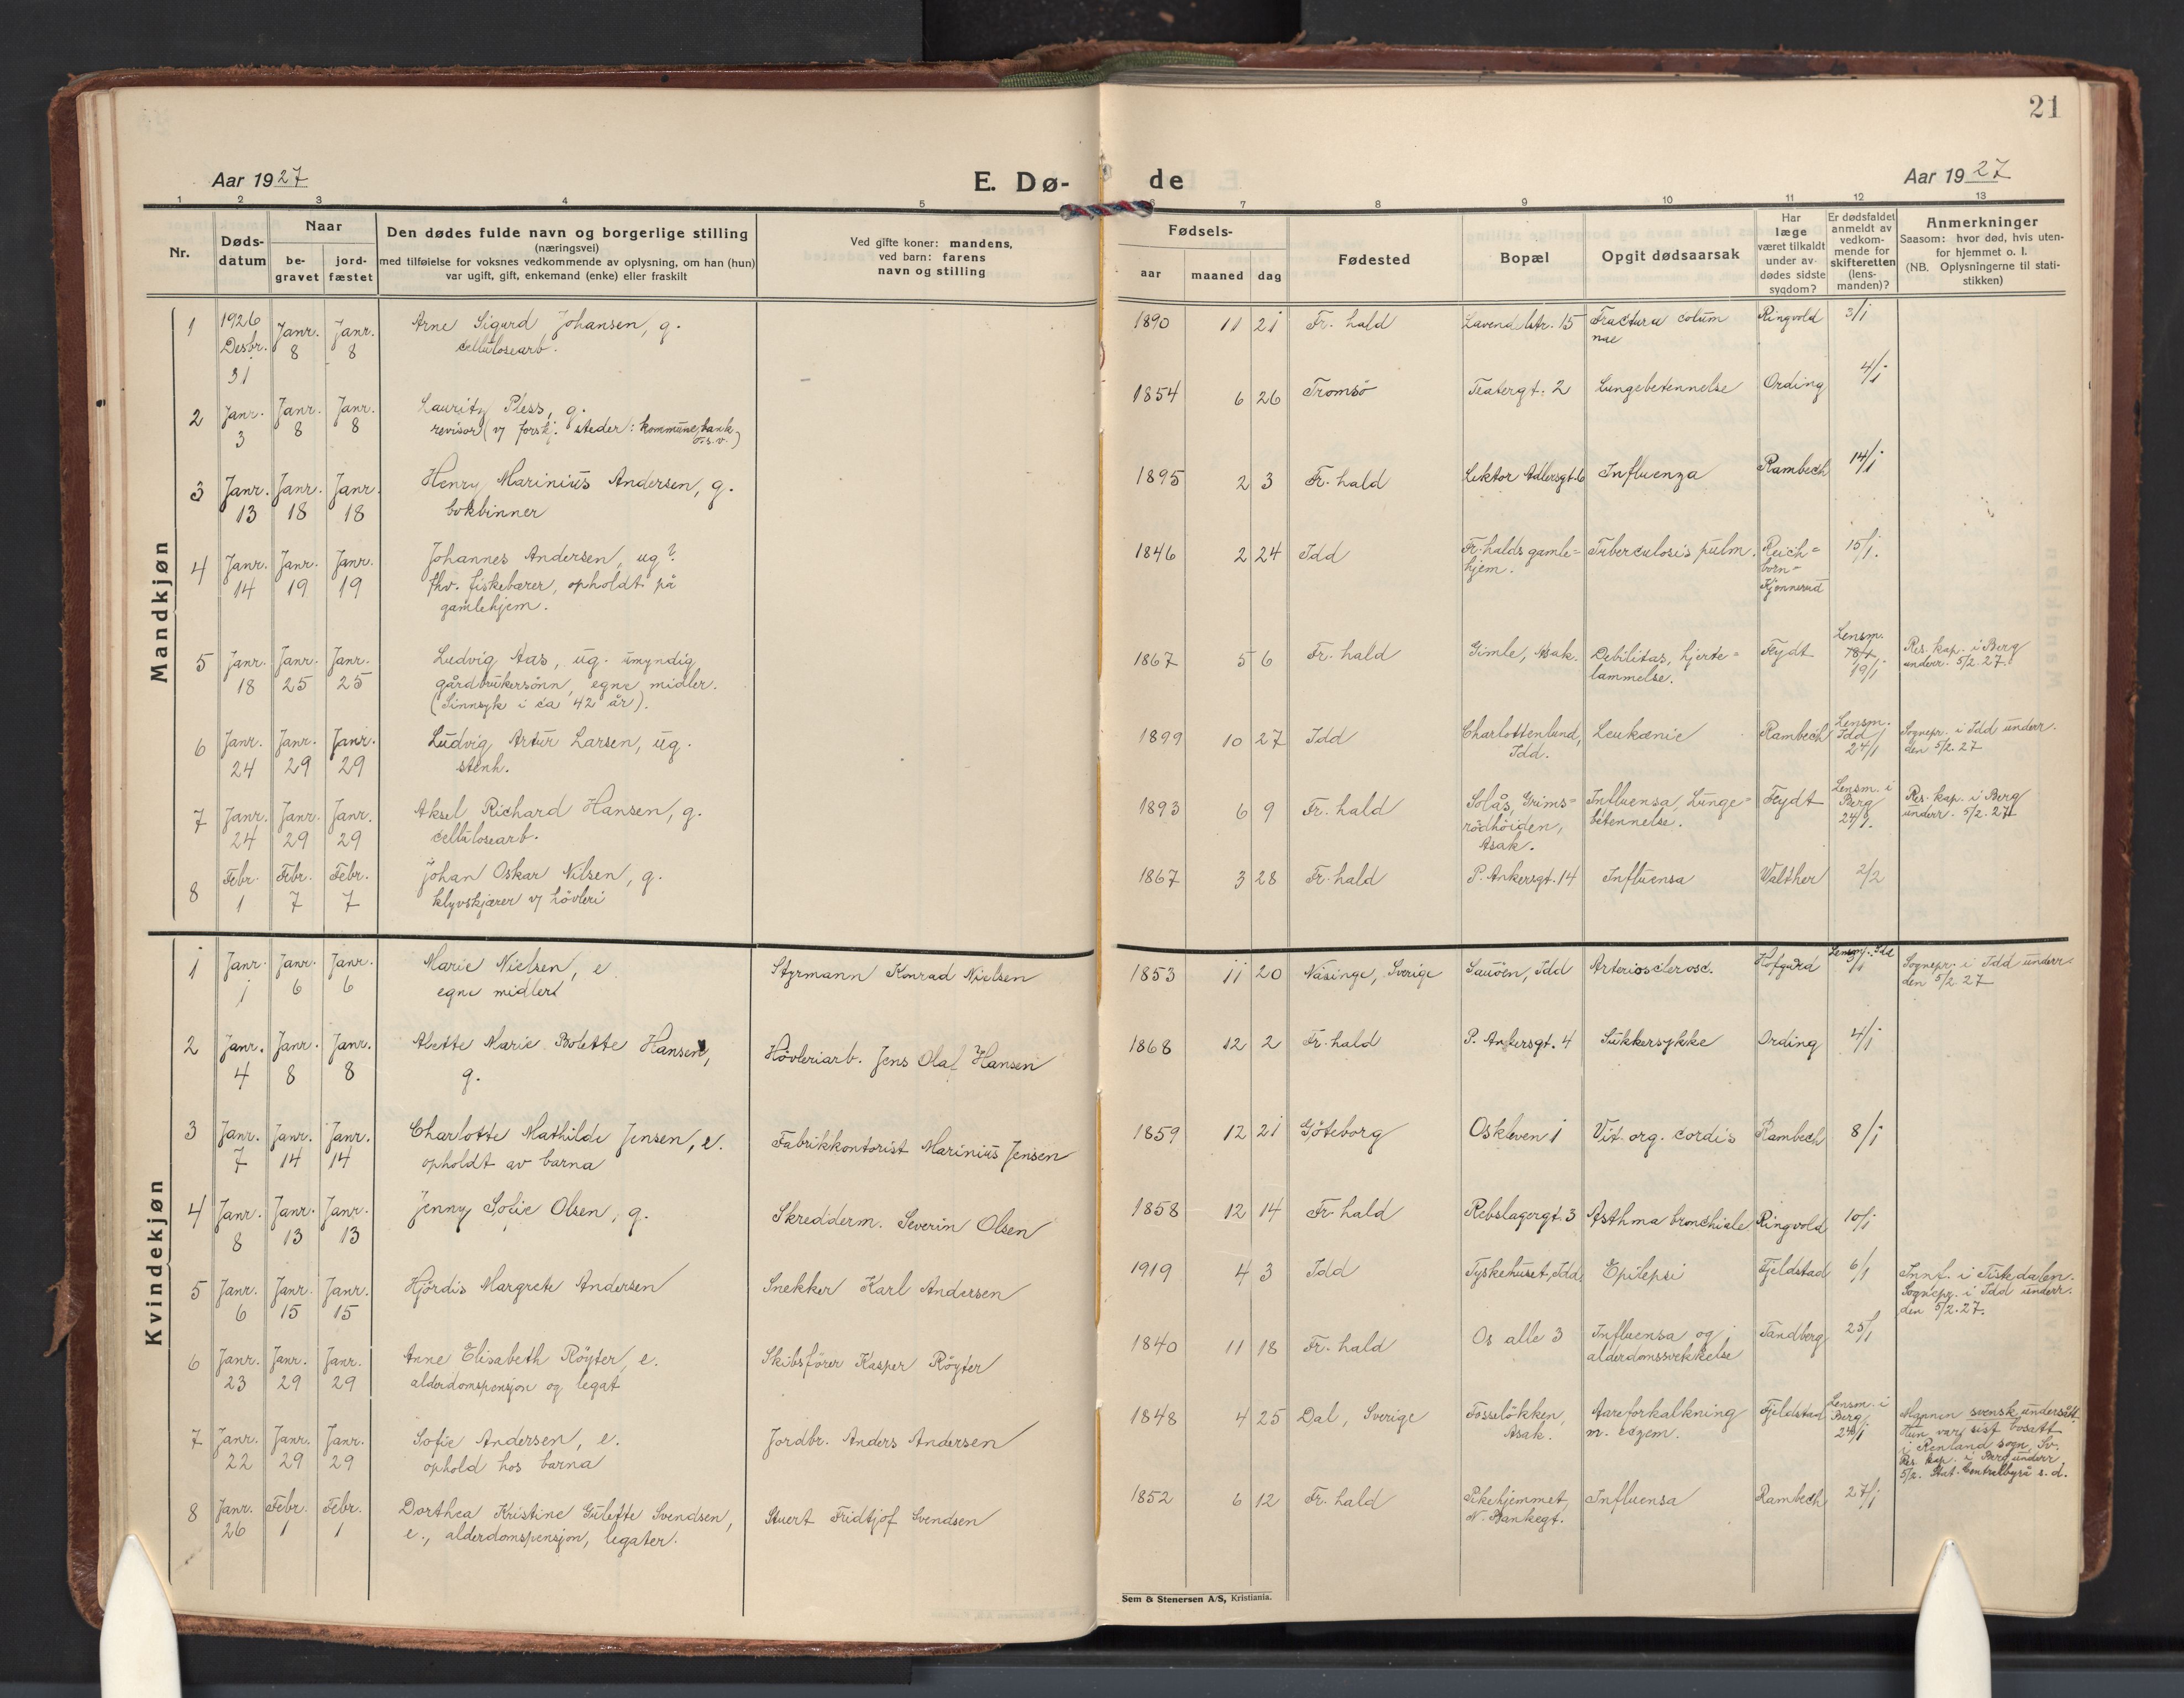 21
Aar 1927
E. Dø-
de
Aar 1927
1 2 3 4 5 6 7 8 9 10 11 12 13
Nr.
Døds-
datum
Naar
be-
gravet
jord-
fæstet
Den dødes fulde navn og borgerlige stilling
(næringsvei)
med tilføielse for voksnes vedkommende av oplysning, om han (hun)
var ugift, gift, enkemand (enke) eller fraskilt
Ved gifte koner: mandens,
ved barn: farens
navn og stilling
Fødsels-
aar maaned dag
Fødested
Bopæl
Opgit dødsaarsak
Har
læge
været tilkaldt
under av-
dødes sidste
sygdom?
Er dødsfaldet
anmeldt av
vedkom-
mende for
skifteretten
(lens-
manden)?
Anmerkninger
Saasom: hvor død, hvis uten-
for hjemmet o. l.
(NB. Oplysningerne til stati-
stikken)
Mandkjøn
1 1926 Desbr. 31 Janr. 8 Janr. 8 Arne Sigurd Johansen, g.
cellulosearb.
1890 11 21 Fr. hald Lavendlstr. 15 Fractura colum
nae
Ringvold 3/1
2 Janr. 3 Janr. 8 Janr. 8 Lauritz Pless, g.
revisor (v/ forskj. steder: kommune, bank
o.s.v.)
1854 6 26 Tromsö Teatergt. 2 Lungebetennelse Ording 4/1
3 Janr. 13 Janr. 18 Janr. 18 Henry Marinius Andersen, g.
bokbinner
1895 2 3 Fr. hald Lektor Adlersgt. 6 Influenza Rambech 14/1
4 Janr. 14 Janr. 19 Janr. 19 Johannes Andersen, ug?
fhv. fiskebærer, opholdt på
gamlehjem.
1846 2 24 Idd Fr. halds gamle=
hjem.
Tuberculosis pulm. Reich=
born=
Kjennerud
15/1.
5 Janr. 18 Janr. 25 Janr. 25 Ludvig Aas, ug. umyndig
gårdbrukersönn, egne midler.
(Sinnsyk i ca 42 år).
1867 5 6 Fr. hald Gimle, Asak. Debilitas, hjerte=
lammelse.
Feydt Lensm.
19/1
Res. kap. i Berg
underr. 5/2. 27.
6 Janr. 24 Janr. 29 Janr. 29 Ludvig Artur Larsen, ug.
stenh.
1899 10 27 Idd Charlottenlund,
Idd.
Leukæmie Rambech Lensm.
Idd
24/1
Sognepr. i Idd underr.
den 5/2. 27
7 Janr. 24 Janr. 29 Janr. 29 Aksel Richard Hansen, g.
cellulosearb.
1893 6 9 Fr. hald Solås, Grims=
rödhöiden,
Asak.
Influensa, Lunge=
betennelse.
Feydt Lensm. i
Berg
24/1.
Res. kap. i Berg
underr. 5/2. 27
8 Febr. 1 Febr. 7 Febr. 7 Johan Oskar Nilsen, g.
klyvskjærer v/ hövleri
1867 3 28 Fr. hald P. Ankersgt. 14 Influensa Walther 2/2
Kvindekjøn
1 Janr. 1 Janr. 6 Janr. 6 Marie Nielsen, e
egne midler
Styrmann Konrad Nielsen
1853 11 20 Näsinge, Sverige Sauöen, Idd Arteriosclerosc. Hofgård Lensm. i Idd
Sognepr. i Idd underr.
den 5/2. 27
2 Janr. 4 Janr. 8 Janr. 8 Alette Marie Bolette Hansen,
g.
Hövleriarb. Jens Olaf Hansen
1868 12 2 Fr. hald P. Ankersgt. 4 Sukkersykke Ording 4/1
3 Janr. 7 Janr. 14 Janr. 14 Charlotte Mathilde Jensen, e.
opholdt av barna
Fabrikkontorist Marinius Jensen
1859 12 21 Göteborg Oskleven 1 Vit. org. cordis Rambech 8/1
4 Janr. 8 Janr. 13 Janr. 13 Jenny Sofie Olsen, g.
Skredderm. Severin Olsen
1858 12 14 Fr. hald Rebslagergt. 3 Asthma bronchiale Ringvold 10/1
5 Janr. 6 Janr. 15 Janr. 15 Hjördis Margrete Andersen
Snekker Karl Andersen
1919 4 3 Idd Tyskehuset, Idd. Epilepsi Fjeldstad 6/1
Innf. i Tistedalen.
Sognepr. i Idd underr.
den 5/2. 27.
6 Janr. 23 Janr. 29 Janr. 29 Anne Elisabeth Röyter, e.
alderdomspensjon og legat
Skibsförer Kasper Röyter
1840 11 18 Fr. hald Os alle 3 Influensa og
alderdomssvekkelse
Tandberg 25/1
7 Janr. 22 Janr. 29 Janr. 29 Sofie Andersen, e.
ophold hos barna
Jordbr. Anders Andersen
1848 4 25 Dal, Sverige Fosselökken,
Asak.
Aareforkalkning
m. eczem.
Fjeldstad Lensm. i
Berg
24/1
Mannen svensk undersått.
Hun var sist bosatt
i Renland sogn, Sv.
Res. kap. i Berg underr.
5/2. Stat. Centralbyrå s. d.
8 Janr. 26 Febr. 1 Febr. 1 Dorthea Kristine Gulette Svendsen,
e., alderdomspensjon, legater.
Stuert Fridtjof Svendsen
1852 6 12 Fr. hald Pikehjemmet,
N. Bankegt.
Influensa Rambech 27/1
Sem & Stenersen A/S, Kristiania.